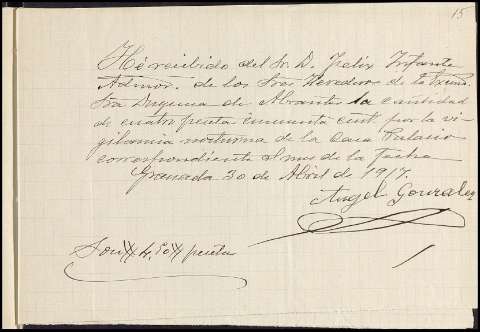 15
He recibido del Sr. D. Felix Infante
Admor. de los Sres Herederos de la Excma.
Sra Duquesa de Abrantes la cantidad
de cuatro pesetas cincuenta cent. por la vi-
gilancia nocturna de la Casa Palacio
correspondiente al mes de la fecha
Granada 30 de Abril de 1917.
Angel Gonzalez
Son 4,50 pesetas